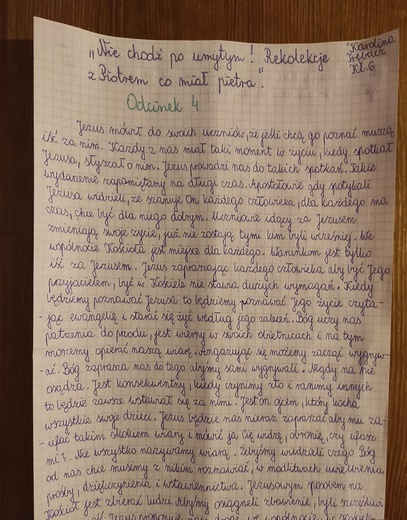 „Nie chodź po umytym! Rekolekcje
z Piotrem co miał pietra".
Karolina
Kl. 6
Odcinek 4
Jezus mówił do swoich uczniów, że jeśli chcą go poznać muszą
iść za nim. Każdy z nas miał taki moment w życiu, kiedy spotkał
Jezusa, słyszał o nim. Jezus prowadzi nas do takich spotkań. Takie
wydarzenie zapamiętamy na długi czas. Apostołowie gdy spotykali
Jezusa widzieli, że szanuje On każdego człowieka, dla każdego ma
czas, chce być dla niego dobrym. Uczniowie idący za Jezusem
zmieniają swoje życie, już nie zostają tymi kim byli wcześniej. We
wspólnocie Kościoła jest miejsce dla każdego. Warunkiem jest tylko
iść za Jezusem. Jezus zapraszając każdego człowieka aby być Jego
przyjacielem, być w Kościele nie stawia dużych wymagań. Kiedy
będziemy poznawać Jezusa to będziemy poznawać Jego życie czyta-
-jąc ewangelię i starać się żyć według jego zasad. Bóg uczy nas
patrzenia do przodu, jest wierny w swoich obietnicach i na tym
możemy opierać naszą wiarę. Angażując się możemy zacząć wygryw-
-ać. Bóg zaprasza nas do tego abyśmy sami wygrywali. Nigdy na nie
osądza. Jest konsekwentny, kiedy czynimy zło i ranimy innych
to będzie zawsze wstawiał się za nimi. Jest on ojcem, który kocha
wszystkie swoje dzieci. Jezus będzie nas nieraz zapraszał aby mu za-
-ufać takim skokiem wiary i mówić ja Cię widzę, obronię, czy ufasz
mi?. Nie wszystko nazywamy wiarą. Żebyśmy wiedzieli czego Bóg
od nas chce musimy z nikim rozmawiać, w modlitwach uwielbienia
prośby, dziękczynienia i wstawiennictwa. Jezusowym posłem na
Kościół jest zbierać ludzi. Abyśmy osiągnęli zbawienie, byli szczęśliwi